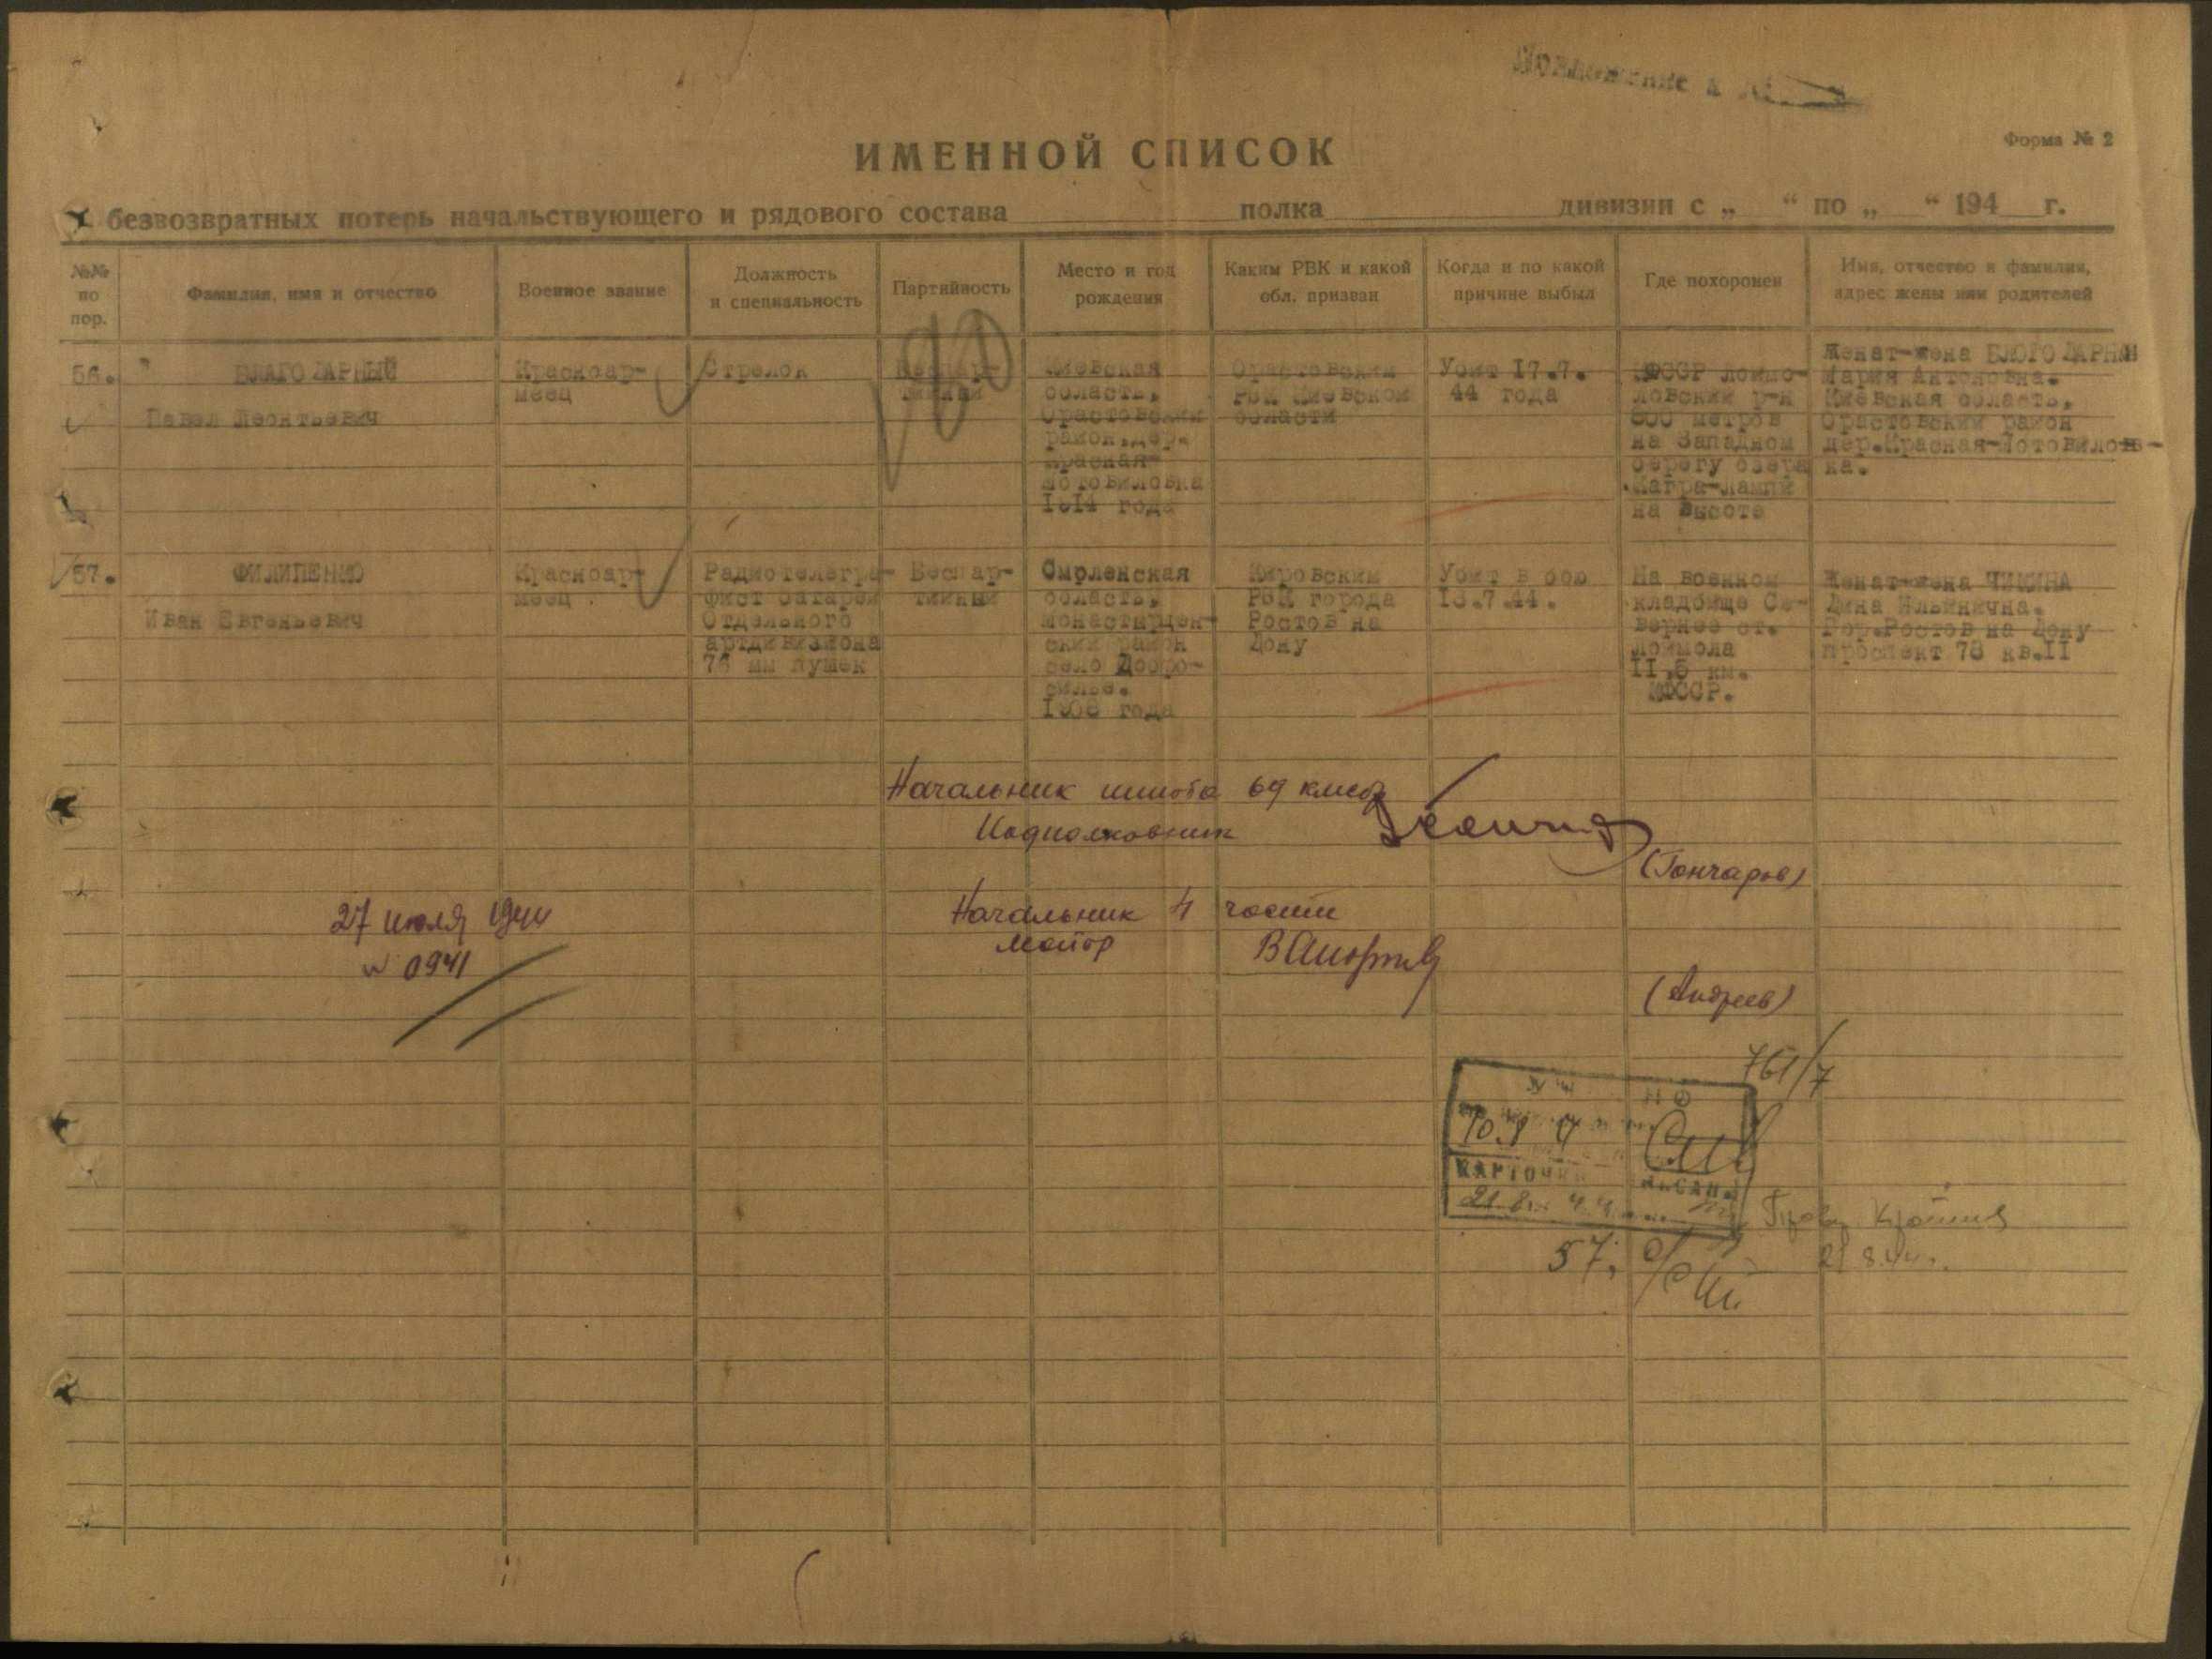 ИМЕННОЙ СПИСОК
Форма № 2
безвозвратных потерь начальствующего и рядового состава полка дивизии с „ “ по „ “ 194 г.
№№ по пор.
Фамилия, имя и отчество
Военное звание
Должность и специальность
Партийность
Место и год рождения
Каким РВК и какой обл. призван
Когда и по какой причине выбыл
Где похоронен
Имя, отчество и фамилия, адрес жены или родителей
56.
БЛАГОДАРНЫЙ
Павел Леонтьевич
Красноар-
меец
Стрелок
Беспар-
тийный
Киевская
область,
Фрастовский
район, дер.
Красная-
Мотовиловка
1914 года
Фрастовским
РВК Киевской
области
Убит 17.7.
44 года
КФССР Лоймо-
ловский р-н
800 метров
на Западном
берегу озера
Кагра-Лампи
на высоте
Женат-жена БЛОГОДАРНАЯ
Мария Антоновна.
Киевская область,
Фрастовский район
дер.Красная-Мотовилов-
ка.
57.
ФИЛИПЕНКО
Иван Евгеньевич
Красноар-
меец
Радиотелегра-
фист батареи
Отдельного
артдивизиона
76 мм пушек
Беспар-
тийный
Смоленская
область,
Монастырщен-
ский район
село Добро-
силье.
1908 года
Кировским
РВК города
Ростов на
Дону
Убит в бою
18.7.44.
На военном
кладбище Се-
вернее ст.
Лоймола
11,5 км.
КФССР.
Женат-жена ЧИКИНА
Дина Ильинична.
Гор.Ростов на Дону
проспект 78 кв.11
Начальник штаба 69 кмсбр
Подполковник
(Гончаров)
27 июля 1944
№ 0941
Начальник 4 части
майор
(Андреев)
761/7
КАРТОЧКИ
21.8 44
57,
21.8.44.